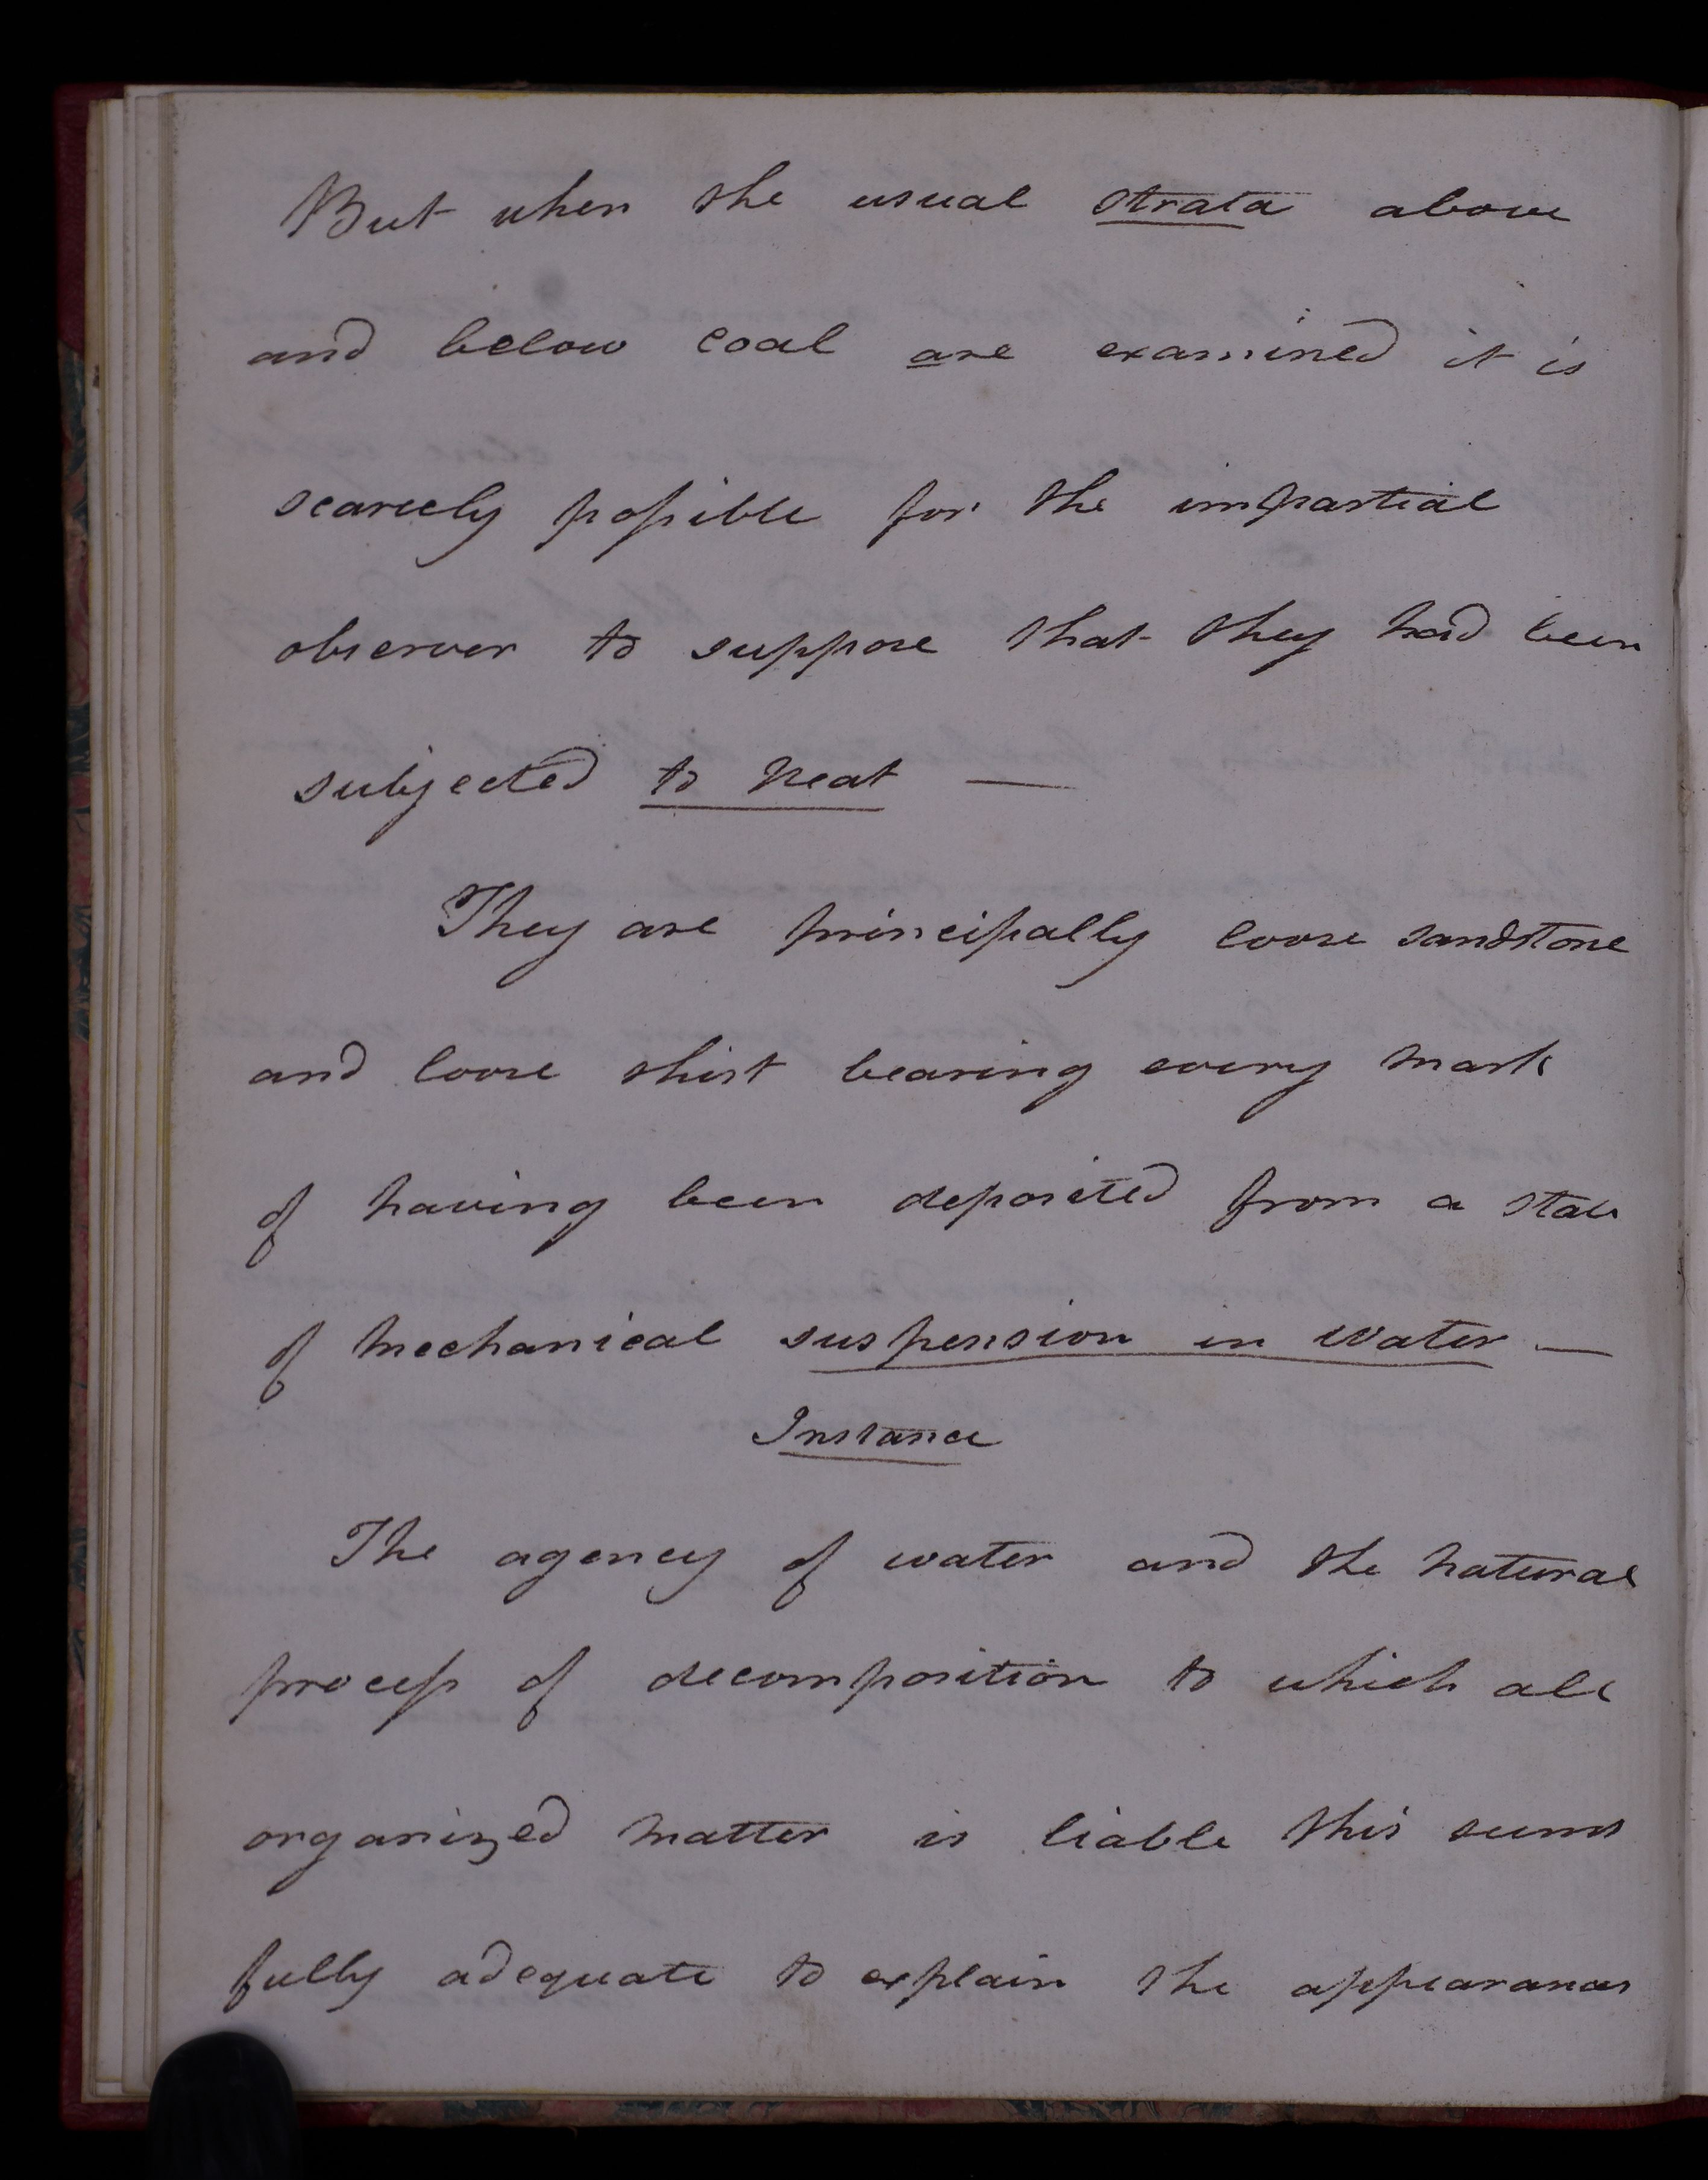 But when the usual strata above
and below coal are examined it is
scarcely possible for the impartial
observer to suppose that they had been
subjected to heat —
They are principally loose sandstone
and loose shist bearing every mark
of having been deposited from a state
of mechanical suspension in water —
Instance
The agency of water and the natural
process of decomposition to which all
organized matter is liable this seems
fully adequate to explain the appearances